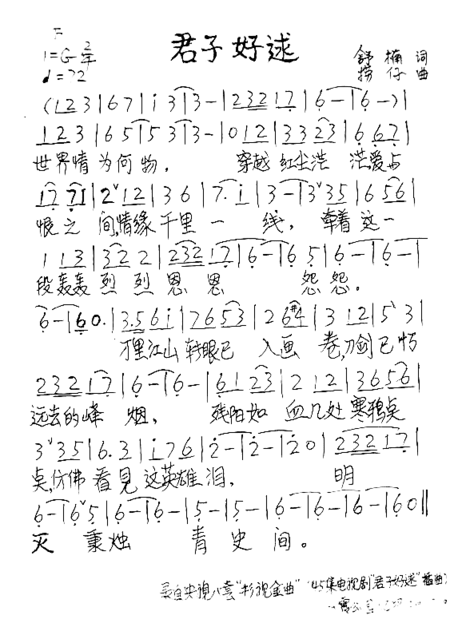 君子好逑
1=G 2/4
♩=72
舒楠 词
捞仔 曲
(123|67|i 33|3-|232 17|6-|6-)|
123|65|5 33|3-|0 12|33 23|6 67|
世界情为何物，穿越红尘浩茫爱与
17 71|2ˇ12|36|7. i|3-|3ˇ35|6 56|
恨之间，情缘千里一线，牵着这一
113|32 2|232 17|6-|6 5|6-|6-|
段轰轰烈烈恩恩怨怨。
6-|60.|3.56i|7653|26|312|5ˇ3|
里江山转眼已入画卷，刀剑已
232 17|6-|6-|61 23|2 12|36 56|
远去的峰烟，残阳如血几处寒鸦桌
3ˇ35|6. 3|i 76|2-|2-|20|232 17|
桌，仿佛看见这英雄泪，明
6-|6ˇ5|6-|5-|5-|6-|6-|6-|60‖
灭秉烛青史间。
45集电视剧"君子好逑"插曲)